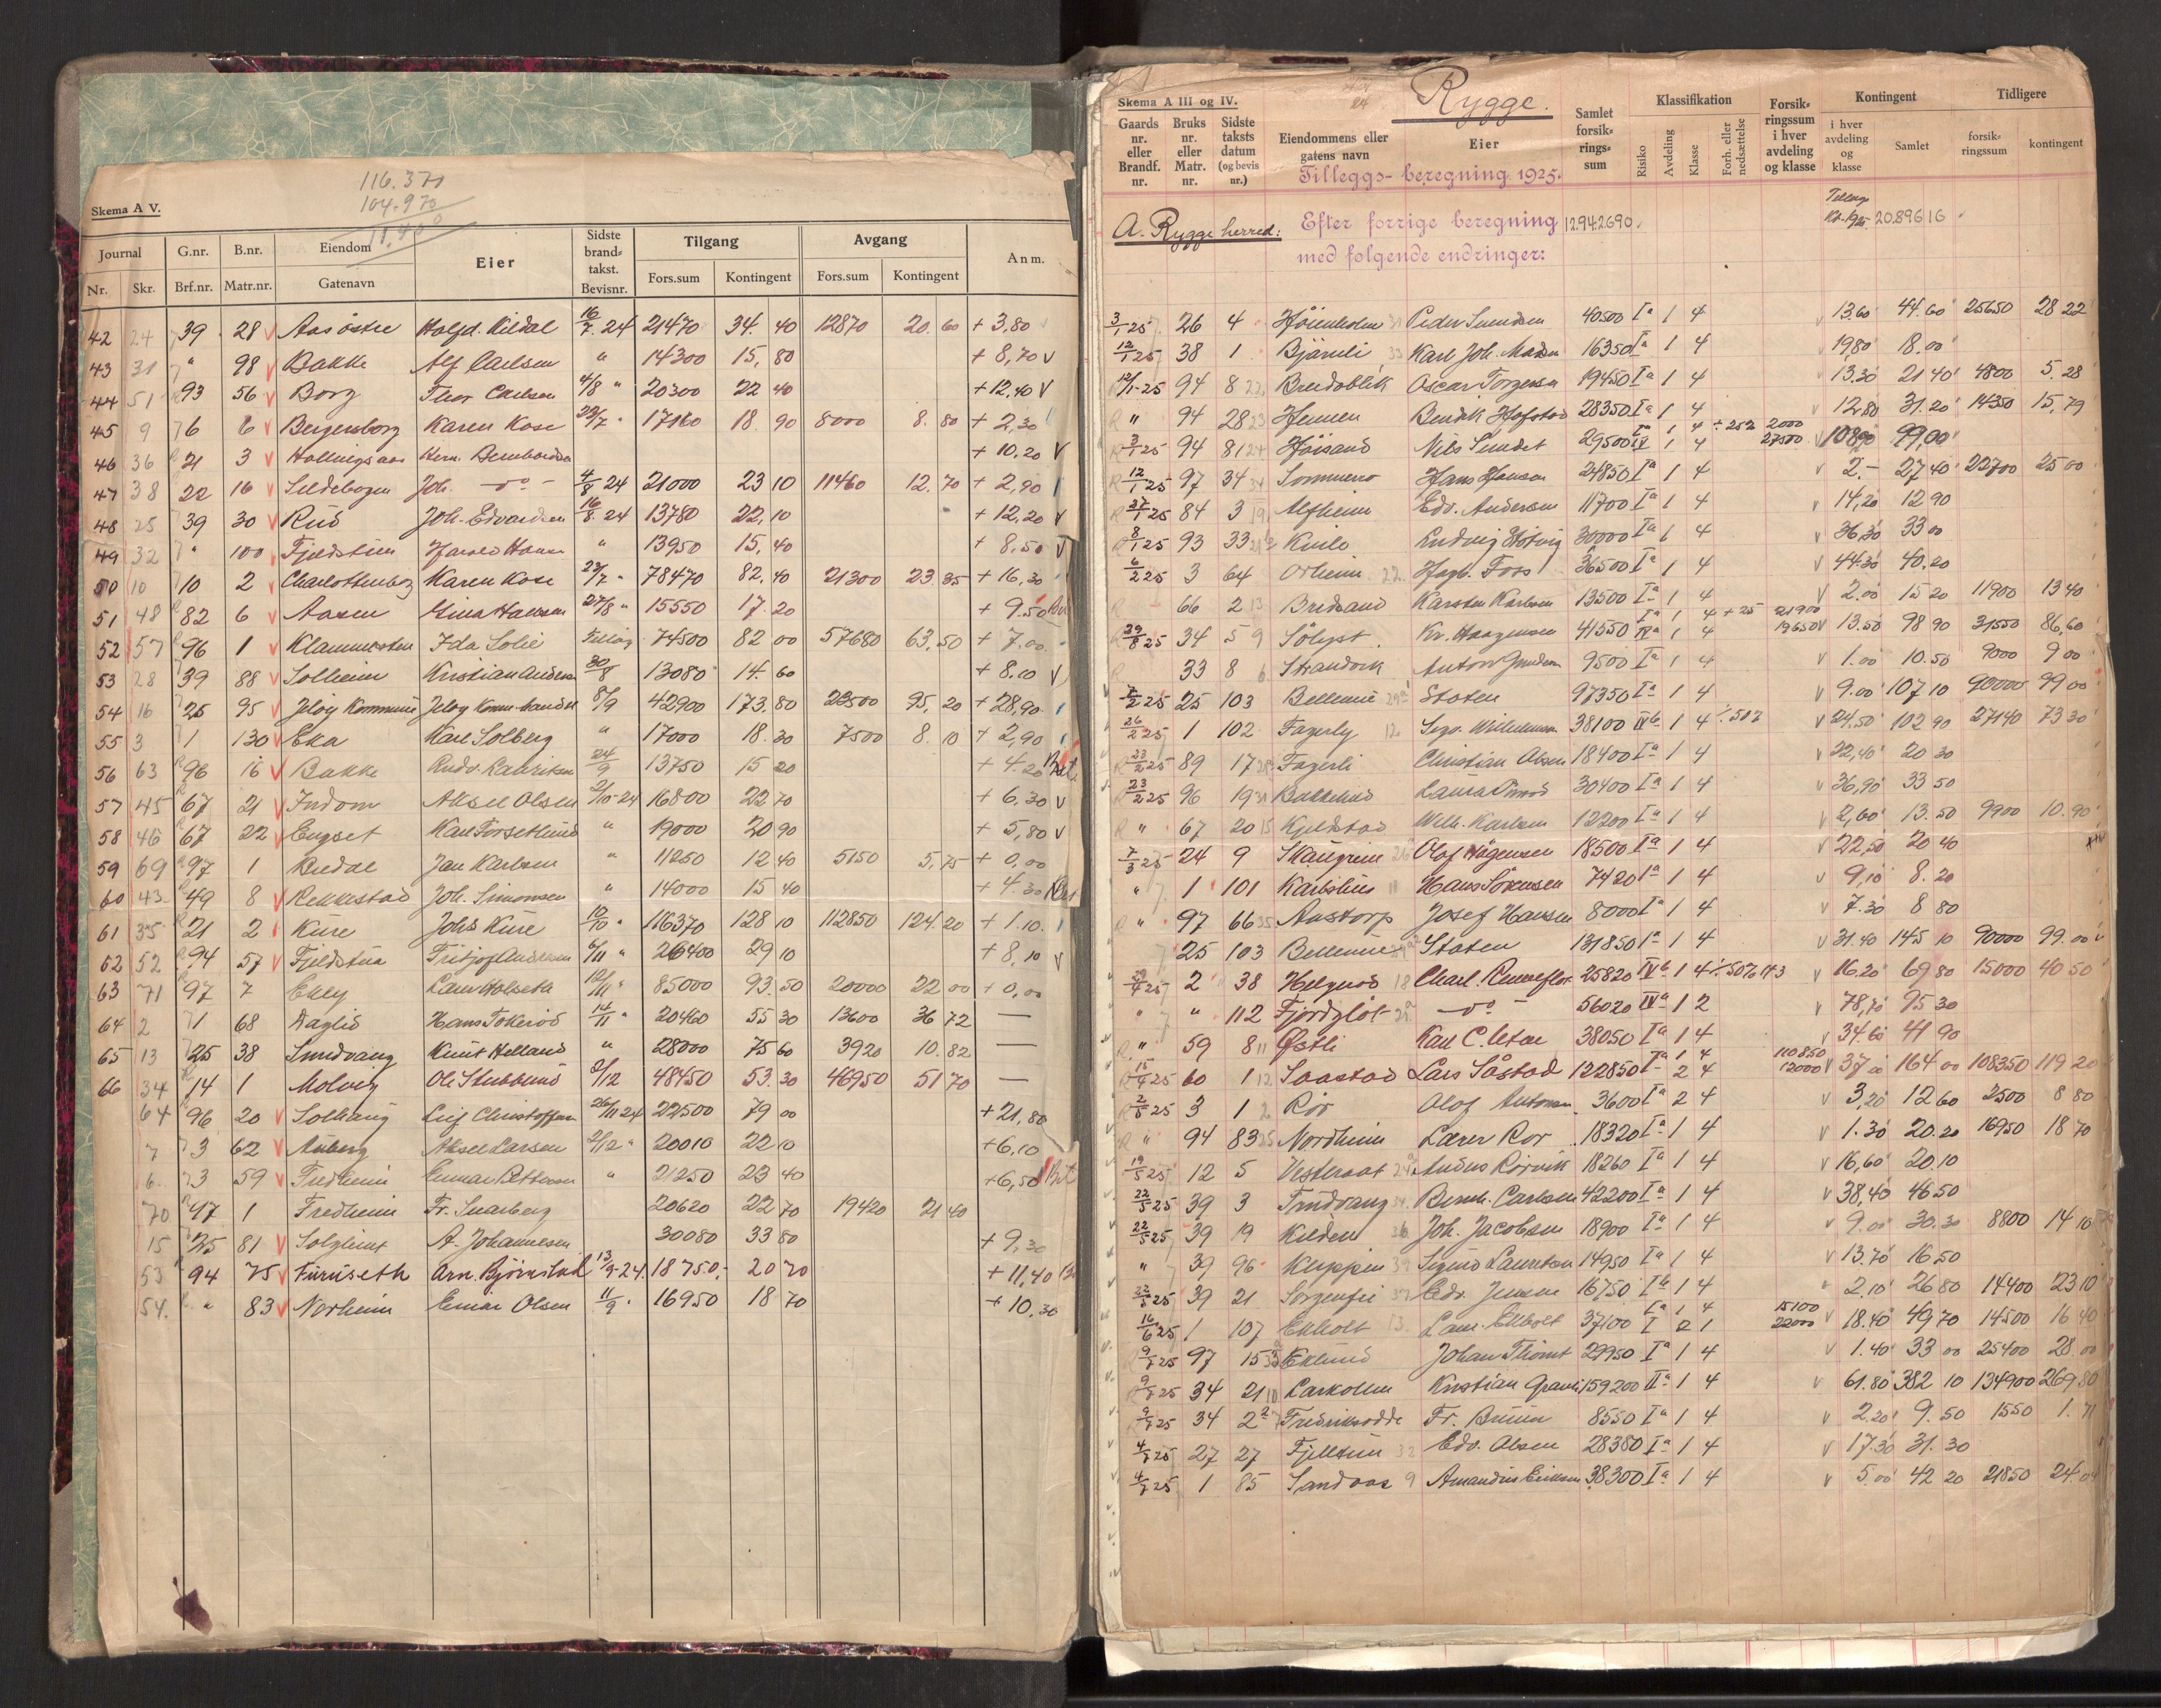 116.370
104.970
11,400
Skema A V.
Journal G.nr. B.nr. Eiendom Eier Sidste brand- takst. Bevisnr. Tilgang Avgang Anm.
Nr. Skr. Brf.nr. Matr.nr. Gatenavn Fors.sum Kontingent Fors.sum Kontingent
42 24 39 28 Aas østre Halfd. Kildal 16/7 24 21470 34.40 12870 20.60 + 3,80
43 31 " 98 Bakke Alf Carlsen " 14300 15,80 + 8,70 v
44 51 93 56 Borg Thor Carlsen 4/8 " 20300 22 40 + 12,40 v
45 9 6 6 Bergersborg Karen Kose 23/7 " 17160 18.90 8000 8.80 + 2,30
46 36 21 3 Herm. + 10.20 v
47 38 22 16 Sildebogen Joh. -"- 4/8 24 21000 23 10 11460 12.70 + 2,90
48 25 39 30 Rud Joh. Edvardsen 16/8 24 13780 22,10 + 12,20 v
49 32 " 100 Fjeldstuen Harald Hansen " 13950 15,40 + 8,50 v
50 10 10 2 Charlottenborg Karen Kose 23/7 " 78470 82,40 21300 23.35 + 16,30
51 48 82 6 Aasen Gina Hansen 27/8 " 15550 17.20 + 9.50
52 57 96 1 Klammersten Ida Solie Tillæg 74500 82 00 57680 63,50 + 7.00
53 28 39 88 Solheim Kristian Anders 30/8 13080 14.60 + 8.10 v
54 16 25 95 Jeløy Kommune 8/9 42900 173.80 23500 95,20 + 28,90
55 3 1 130 Eka Karl Solberg " 17000 18.30 7500 8.10 + 2,90
56 63 96 16 Bakke Lauritsen 24/9 13750 15 20 + 4.20
57 45 67 21 Indom Aksel Olsen 2/10-24 16800 22 70 + 6.30 v
58 46 67 22 Engset Karl Torsetlund " 19000 20 90 + 5,80 v
59 69 97 1 Bredal Jan Karlsen " 11250 12 40 5150 5,75 + 0,00
60 43 49 8 Rekkestad Joh. Simonsen " 14000 15 40 + 4.30
61 35 21 2 Kure Johs Kure 10/10 " 116370 128 10 112850 124.20 + 1.10
62 52 94 57 Fjeldstua Fritjof Andersen 6/11 " 26400 29 10 + 8,10 v
63 71 97 7 Ekely Laur Holseth 12/11 " 85000 93.50 20000 22 00 + 0,00
64 2 1 68 Daglid Hans Tokerød 14/11 " 20460 55 30 13600 36 72 —
65 13 25 38 Sundvang Knut Holland " 28000 75 60 3920 10.82 —
66 34 14 1 Molvig Ole Stubberud 8/12 48450 53.30 46950 51 70 —
64 96 20 Solhaug Leif Christoffersen 26/11 24 22500 79 00 + 21,80
7 3 62 Auberg Aksel Larsen 2/12 " 20010 22 10 + 6,10
6 3 59 Fredheim Einar Pettersen " 21250 23 40 + 6,50
70 47 1 Fredheim Fr. Svarberg 20620 22 70 19420 21 40
15 25 81 Solglimt A. Johannesen 30080 33 80 + 9,30
53 94 75 Furuseth Arn. Bjørnstad 13/9-24. 18750,- 20 70 + 11,40
54. " 83 Norheim Einar Olsen 11/9 " 16950 18 70 + 10,30
Skema A III og IV.
Rygge.
Gaards nr. eller Brandf. nr. Bruks nr. eller Matr. nr. Sidste taksts datum (og bevis nr.) Eiendommens eller gatens navn Eier Samlet forsik- rings- sum Klassifikation Risiko Avdeling Klasse Forh. eller nedsættelse Forsik- ringssum i hver avdeling og klasse Kontingent i hver avdeling og klasse Samlet Tidligere forsik- ringssum kontingent
Tilleggs-beregning 1925.
A. Rygge herred: Efter forrige beregning 12.942690. 20.896 16
med følgende endringer:
3/1 25 26 4 Høienholm Peder Svendsen 40500 Ia 1 4 13.60 44.60 25650 28 22
12/1 25 38 1 Bjårneli Karl Joh. Madsen 16350 Ia 1 4 19.80 18.00
12/1-25 94 8 Breidablik Oscar Torgersen 19450 Ia 1 4 13.30 21 40 4800 5.28
" 94 28 Heimen Bendik Hofstad 28350 Ia 1 4 12,80 31.20 14350 15,79
3/1 25 94 81 Høisand Nils Sundet 29500 Ia 1 4 + 25% 2000 IV 1 4 27500 108,90 99,00
12/1 25 97 34 Sommerro Hans Hansen 24850 Ia 1 4 2.- 27 40 22700 25 00
27/1 25 84 3 Alfheim Edv. Andersen 11700 Ia 1 4 14,20 12 90
8/1 25 93 33 Ludvig 30000 Ia 1 4 36,30 33 00
6/2 25 3 64 Orheim Hagb. Foss 36500 Ia 1 4 44.30 40.20
66 2 Bredsand Karsten Karlsen 13500 Ia 1 4 2.00 15 20 11900 13 40
29/8 25 34 5 Sølyst Kr. Haagensen 41550 Ia 1 4 + 25 21900 IVa 1 4 19650 13.50 98 90 31550 86,60
33 8 Strandvik Anton Gundersen 9500 Ia 1 4 1.00 10.50 9000 9 00
7/2 25 25 103 Bellevue Staten 97350 Ia 1 4 9.00 107 10 90000 99 00
26/2 25 1 102 Fagerly Wilhelmsen 38100 IVb 1 4 ÷ 50% 24,50 102 90 27140 73 30
23/2 25 89 17 Fagerli Christian Olsen 18400 Ia 1 4 22,40 20 30
23/2 25 96 19 Bakkelund Laura 30400 Ia 1 4 36,90 33 50
" 67 20 Kjeldstad Wilh. Karlsen 12200 Ia 1 4 2,60 13.50 9900 10.90
7/3 25 24 9 Skaugrim Olof Hågensen 18500 Ia 1 4 22,50 20 40
" 1 101 Karlshus Hans Sørensen 7420 Ia 1 4 9,10 8.20
" 97 66 Austorp Josef Hansen 8000 Ia 1 4 7.30 8 80
25 103 Bellevue Staten 131850 Ia 1 4 31.40 145 10 90000 99.00
29/4 25 2 38 Helgerød Charl. 25820 IVb 1 4 ÷ 50% 16.20 69 80 15000 40 50
" " 112 Fjordgløt -"- 56020 IVa 1 2 78,70 95 30
" 59 8 Østli Karl C. 38050 Ia 1 4 34.60 41 90
15/4 25 60 1 Saastad Lars Såstad 122850 Ia 1 4 110850 2 4 12000 37 164 00 108350 119 20
2/5 25 3 1 Rør Olof Antonsen 3600 Ia 2 4 3,20 12 60 2500 8 80
" 94 83 Nordheim Lærer Ror 18320 Ia 1 4 1.30 20.20 16950 18 70
19/5 25 12 5 Vesteraat Anders Rørvik 18260 Ia 1 4 16,60 20.10
22/5 25 39 3 Trudvang Bernh. Carlsen 42200 Ia 1 4 38,40 46 50
22/5 25 39 19 Kilden Joh. Jacobsen 18900 Ia 1 4 9.00 30.30 8800 14 10
" 39 96 Kleppen Sigurd Lauritsen 14950 Ia 1 4 13.70 16,50
22/5 25 39 21 Sorgenfri Edv. Jensen 16750 Ib 1 4 2.10 26 80 14400 23 10
16/6 25 1 107 Ekholt Laur. Ekholt 37100 Ia 1 4 15100 I 2 1 22000 18.40 49 70 14500 16 40
9/7 25 97 15 Eklund Johan Thomt 29950 Ia 1 4 1.40 33 00 25400 28.00
9/7 25 34 21 Larkollen Kristian 159200 IIa 1 4 61.80 382 10 134900 269,80
9/7 25 34 2 Fredriksodde Fr. Bruun 8550 Ia 1 4 2.20 9.50 1550 1.71
4/7 25 27 27 Fjelltun Edv. Olsen 28380 Ia 1 4 17.30 31.30
4/7 25 1 85 Sandaas Amandus Eriksen 38300 Ia 1 4 5.00 42 20 21850 24.04